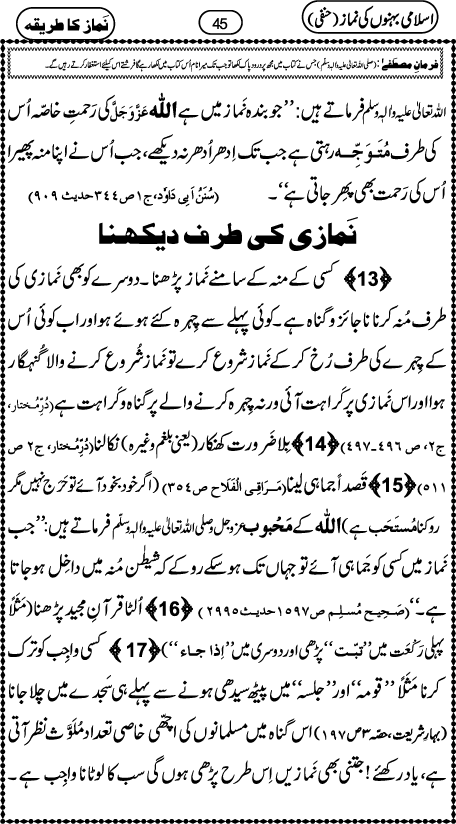 اسلامی بہنوں کی نماز (حنفی)
45
نَماز کا طریقہ
فرمانِ مصطفےٰ: (صلی اللہ تعالیٰ علیہ والہٖ وسلم) جس نے کتاب میں مجھ پر دُرود پاک لکھا تو جب تک میرا نام اُس کتاب میں لکھا رہے گا فرشتے اس کیلئے استغفار کرتے رہیں گے۔
اللہ تعالیٰ علیہ والہٖ وسلم فرماتے ہیں: ’’جو بندہ نَماز میں ہے اللّٰہ عَزَّوَجَلَّ کی رَحمتِ خاصّہ اُس
کی طرف مُتَوجِّہ رہتی ہے جب تک اِدھر اُدھر نہ دیکھے، جب اُس نے اپنا منہ پھیرا
اُس کی رَحمت بھی پِھر جاتی ہے‘‘۔ (سُنَنُ اَبِی دَاوٗد، ج۱ ص۳۴۴ حدیث ۹۰۹)
نَمازی کی طرف دیکھنا
﴿13﴾ کسی کے منہ کے سامنے نَماز پڑھنا۔ دوسرے کو بھی نَمازی کی
طرف مُنہ کرنا ناجائز و گناہ ہے۔ کوئی پہلے سے چہرہ کئے ہوئے ہو اور اب کوئی اُس
کے چہرے کی طرف رُخ کر کے نَماز شروع کرے تو نَماز شُروع کرنے والا گنہگار
ہوا اور اس نَمازی پر کراہت آئی ورنہ چہرہ کرنے والے پر گناہ و کراہت ہے (دُرِّمُختار،
ج۲، ص ۴۹۶۔۴۹۷) ﴿14﴾ بِلا ضَرورت کھنکار (یعنی بلغم وغیرہ) نکالنا (دُرِّمُختار، ج۲ ص
۵۱۱) ﴿15﴾ قَصداً جماہی لینا (مَرَاقِی الْفَلَاح ص۳۵۴) (اگر خود بخود آئے تو حَرَج نہیں مگر
روکنا مُستَحَب ہے) اللّٰہ کے مَحْبوب عزوجل و صلی اللہ تعالیٰ علیہ والہٖ وسلم فرماتے ہیں: ’’جب
نَماز میں کسی کو جَماہی آئے تو جہاں تک ہو سکے روکے کہ شیطٰن مُنہ میں داخِل ہو جاتا
ہے۔‘‘ (صَحِیح مُسلِم ص۱۵۹۷ حدیث ۲۹۹۵) ﴿16﴾ اُلٹا قرآنِ مجید پڑھنا (مَثَلًا
پہلی رَکْعَت میں ’’تبّت‘‘ پڑھی اور دوسری میں ’’اِذا جاء‘‘) ﴿17﴾ کسی واجِب کو ترک
کرنا مَثَلًا ’’قومہ‘‘ اور ’’جلسہ‘‘ میں پیٹھ سیدھی ہونے سے پہلے ہی سَجدے میں چلا جانا
(بہارِ شریعت، حصّہ ۳ ص ۱۹۷) اس گناہ میں مسلمانوں کی اچّھی خاصی تعداد مُلَوَّث نظر آتی
ہے، یاد رکھئے! جتنی بھی نَمازیں اِس طرح پڑھی ہوں گی سب کا لوٹانا واجِب ہے۔